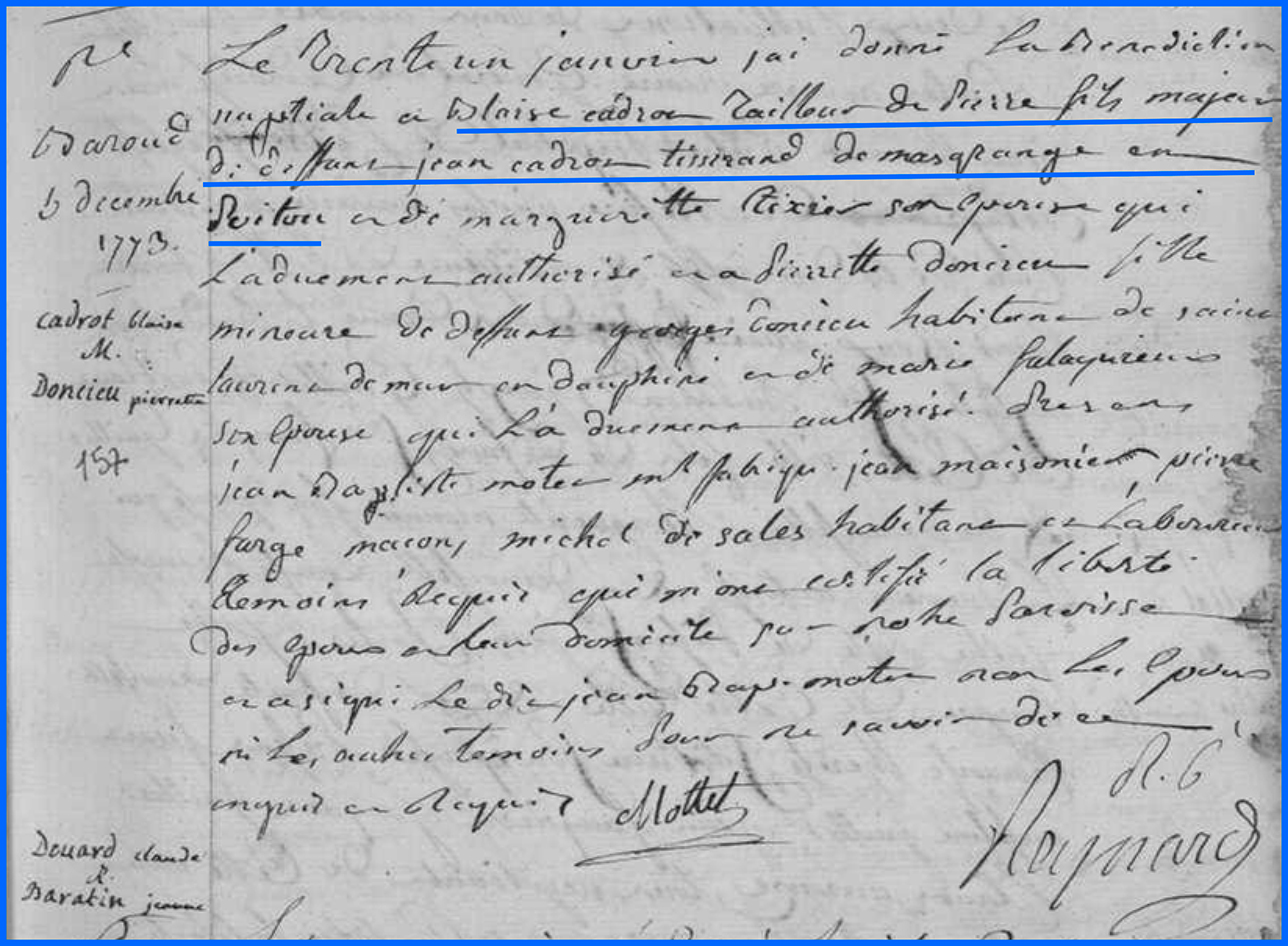 pe
Baroud
5 decembre
1773.
cadrot blaise
M.
Doncieu pierrette
157
Le trente un janvier jai donné la Benediction
nuptiale a Blaise cadrou tailleur de Pierre fils majeur
de deffunt jean cadrou tisserand de masgrange en
Poitou et de margueritte tixier son epouse qui
La duement authorisé et a Pierrette Doncieu fille
mineure de deffunt georges Doncieu habitant de saint
laurent de mur en dauphiné et de marie
son Epouse qui L'a duement authorisé. Presents
jean Baptiste motet md fabriqt. jean maisonier pierre
farge maçons, michel de sales habitant et Laboureur
temoins Requis qui m'ont certifié la liberté
des epoux et leur domicile sur notre Paroisse
et a signé Le dit jean Bapt. motet non Les Epoux
ni Les autres temoins Pour ne savoir de ce
enquis et Requis Mottet
Raynard
Douard claude
&
Baratin jeanne